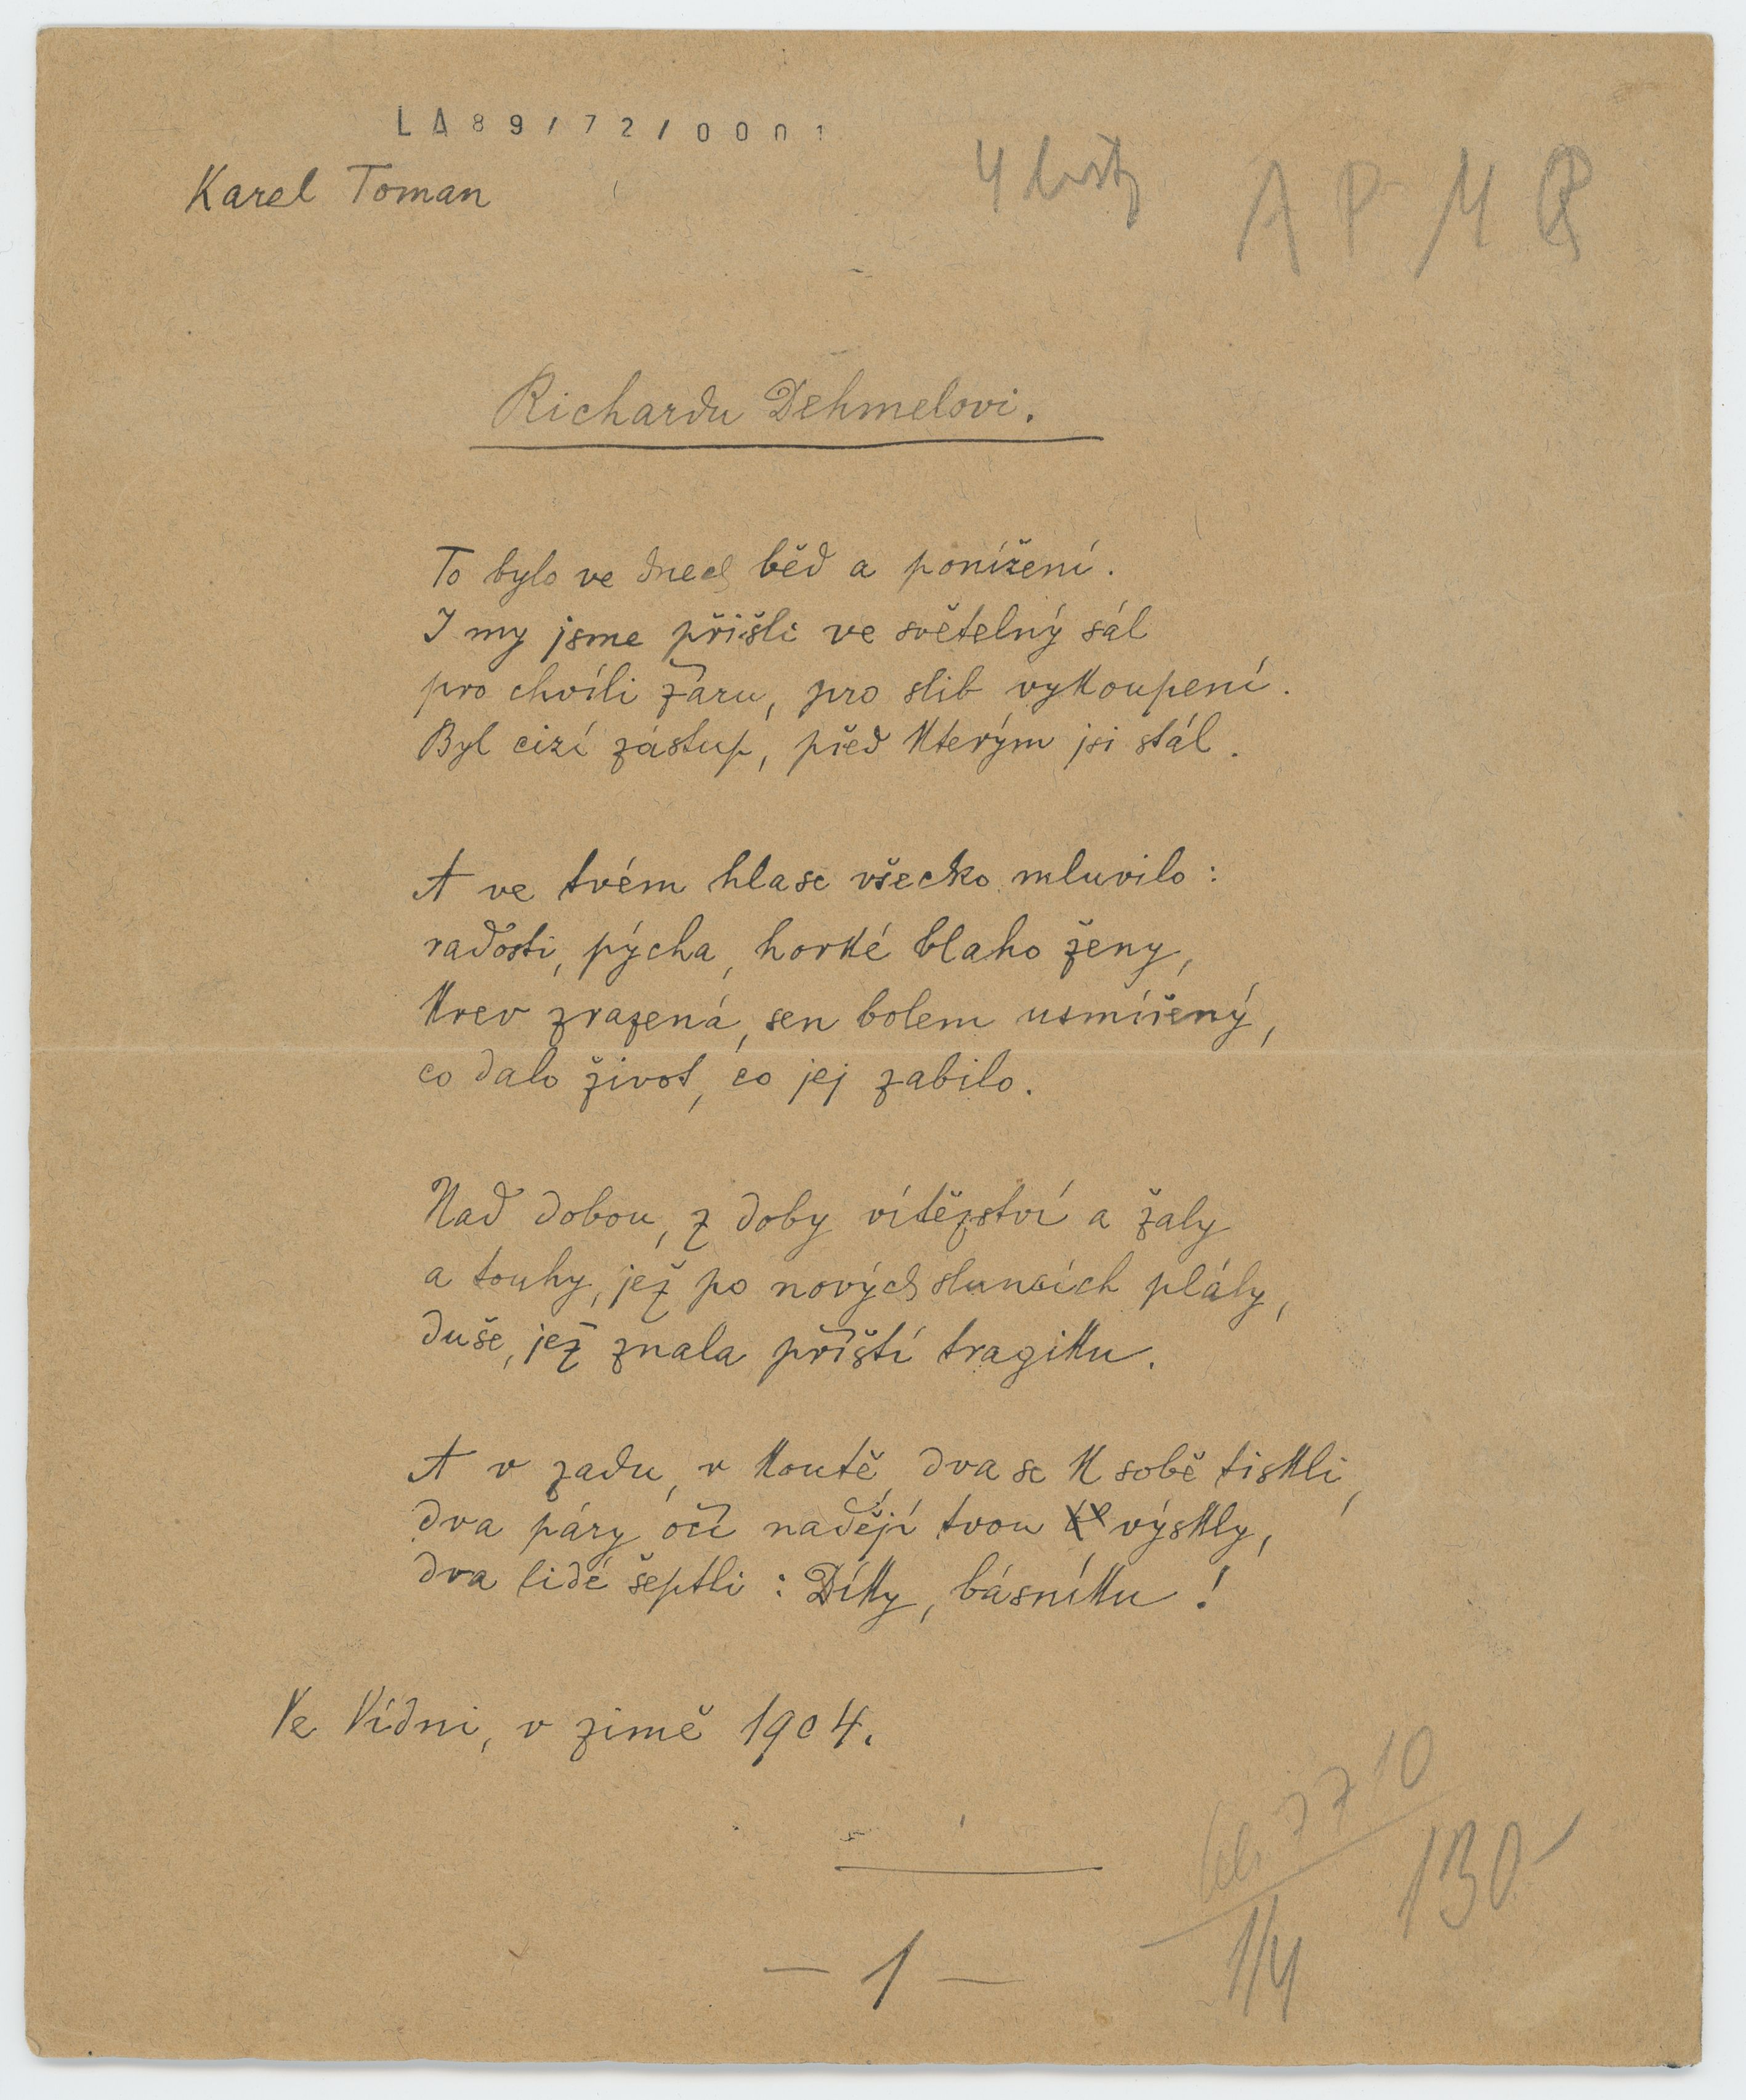 LA89/72/0001
Karel Toman
4 listy
A P M
Richardu Dehmelovi.
To bylo ve dnech běd a ponížení.
I my jsme přišli ve světelný sál
pro chvíli žáru, pro slib vykoupení.
Byl cizí zástup, před kterým jsi stál.
A ve tvém hlase všecko mluvilo:
radosti, pýcha, horké blaho ženy,
krev zrazená, sen bolem usmířený,
co dalo život, co jej zabilo.
Nad dobou, z doby vítězství a žaly
a touhy, jež po nových sluncích plály,
duše, jež znala příští tragiku.
A v zadu, v koutě, dva se k sobě tiskli,
dva páry očí nadějí tvou výskly,
dva lidé šeptli: Díky, básníku!
Ve Vídni, v zimě 1904.
7710
130-
1/4
— 1 —